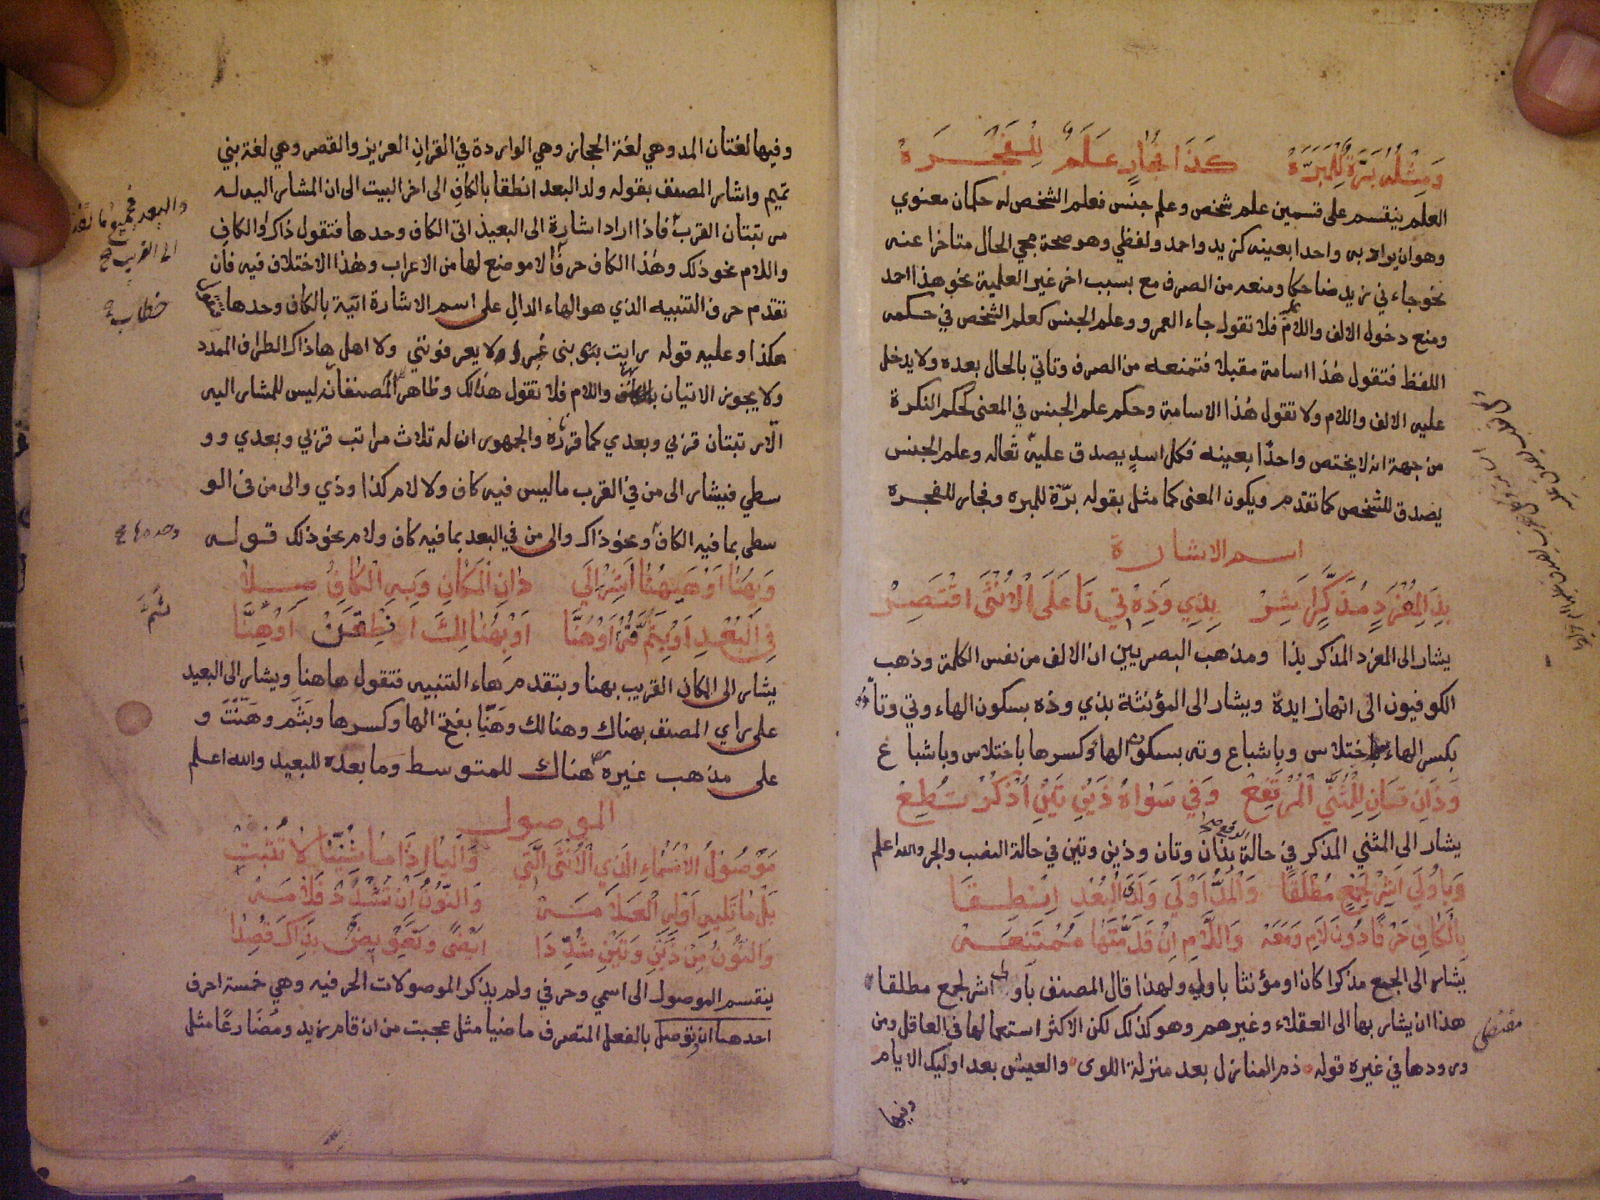 وَمِثْلُهُ بَرَّةُ لِلْمَبَرَّهْ كَذَا فَجَارِ عَلَمٌ لِلْفَجَرَهْ
العلم ينقسم على قسمين علم شخص وعلم جنس فعلم الشخص له حكمان معنوي
وهو ان يراد به واحدا بعينه كزيد واحمد ولفظي وهو صحة مجي الحال متاخرا عنه
نحو جاءني زيد ضاحكا ومنعه من الصرف مع بسبب اخر غير العلمية نحو هذا احمد
ومنع دخول الالف واللام فلا تقول جاء العمرو وعلم الجنس كعلم الشخص في حكمه
اللفظ فتقول هذا اسامة مقبلا فتمنعه من الصرف وتاتي بالحال بعده ولا يدخل
عليه الالف واللام ولا تقول هذا الاسامة وحكم علم الجنس في المعنى كحكم النكرة
من جهة انه لا يختص واحدا بعينه فكل اسد يصدق عليه ثعاله وعلم الجنس
يصدق للشخص كما تقدم ويكون المعنى كما مثل بقوله برّة للمبره وفجار للفجره
اسم الاشارة
بِذَا لِمُفْرَدٍ مُذَكَّرٍ أَشِرْ بِذِي وَذِهْ تِي تَا عَلَى الْأُنْثَى اقْتَصِرْ
يشار الى المفرد المذكر بذا ومذهب البصريين ان الالف من نفس الكلمة وذهب
الكوفيون الى انها زايدة ويشار الى المؤنثة بذي وذه بسكون الهاء وتي وتا وذه
بكسر الهاء باختلاس وباشباع وته بسكون الهاء وكسرها باختلاس وباشباع
وَذَانِ تَانِ لِلْمُثَنَّى الْمُرْتَفِعْ وَفِي سَوَاهُ ذَيْنِ تَيْنِ اُذْكُرْ تُطِعْ
يشار الى المثنى المذكر في حالة الرفع بذان وتان وذين وتين في حالة النصب والجر والله اعلم
وَبِأُولَى أَشِرْ لِجَمْعٍ مُطْلَقًا وَالْمَدُّ أَوْلَى وَلَدَى الْبُعْدِ اِنْطِقَا
بِالْكَافِ حَرْفًا دُونَ لَامٍ وَمَعَهْ وَاللَّامِ إِنْ قَدَّمْتَ هَا مُمْتَنِعَهْ
يشار الى الجمع مذكرا كان او مؤنثا باولى ولهذا قال المصنف باولى اشر لجمع مطلقا
هذا ان يشار بها الى العقلاء وغيرهم وهو كذلك لكن الاكثر استعمالها في العاقل ومن
ورودها في غيره قوله ذم المنازل بعد منزلة اللوى والعيش بعد اوليك الايام
مقتضى
وفيها
وفيها لغتان المد وهي لغة الحجاز وهي الواردة في القران العزيز والقصر وهي لغة بني
تميم واشار المصنف بقوله ولد البعد انطقا بالكاف الى اخر البيت الى ان المشار اليه له
مرتبتان القرب فاذا اراد اشارة الى البعيد اتى الكاف وحدها فتقول ذاك او الكاف
واللام نحو ذلك وهذا الكاف حرفا لا موضع لها من الاعراب وهذا لا اختلاف فيه فان
تقدم حرف التنبيه الذي هو الهاء الدال على اسم الاشارة اتية بالكاف وحدها
هكذا وعليه قوله رايت بني غبرا لا يعرفونني ولا اهل هاذاك الطراف الممدد
ولا يجوز الاتيان بالكاف واللام فلا تقول هذلك وظاهر المصنف انه ليس للمشار اليه
الا رتبتان قربي وبعدي كما قرره والجمهور ان له ثلاث مراتب قربي وبعدي وو
سطي فيشار الى من في القرب ما ليس فيه كاف ولا لام كذا وذي والى من في الو
سطى بما فيه الكاف نحو ذاك والى من في البعد بما فيه كاف ولام نحو ذلك قوله
وَبِهُنَا أَوْ هَاهُنَا أَشِرْ إِلَى دَانِ الْمَكَانِ وَبِهِ الْكَافُ صِلَا
فِي الْبُعْدِ أَوْ بِثَمَّ فُهْ أَوْ هَنَّا أَوْ بِهُنَالِكَ انْطِقَنْ أَوْ هِنَّا
يشار الى المكان القريب بهنا وبتقدم هاء التنبيه فتقول هاهنا ويشار الى البعيد
على راي المصنف بهناك وهنالك وهَنّا بفتح الها وكسرها وبثم وهنت و
على مذهب غيره هناك للمتوسط وما بعده للبعيد والله اعلم
الموصول
مَوْصُولُ الْأَسْمَاءِ الَّذِي الْأُنْثَى الَّتِي وَالْيَا إِذَا مَا ثُنِّيَا لَا تُثْبِتِ
بَلْ مَا تَلِيهِ أَوْلِهِ الْعَلَامَهْ وَالنُّونُ إِنْ تُشْدَدْ فَلَا مَلَامَهْ
وَالنُّونُ مِنْ ذَيْنِ وَتَيْنِ شُدِّدَا أَيْضًا وَتَعْوِيضٌ بِذَاكَ قُصِدَا
ينقسم الموصول الى اسمي وحرفي ولم يذكر الموصولات الحرفيه وهي خمسة احرف
احدها ان توصل بالفعل المتصرف ماضيا مثل عجبت من ان قام زيد ومضارعا مثل
والبعد
الى القريب صح
خطاب
وحدها صح
ثَمَّ